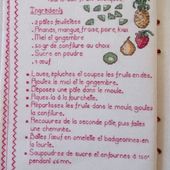 Ingrédients
• 2 pâtes feuilletées
• Ananas, mangue, fraise, poire, kiwi
• Miel et gingembre
• 50 gr de confiture au choix
• Sucre en poudre
• 1 œuf
• Lavez, épluchez et coupez les fruits en dés.
• Ajoutez le miel et le gingembre.
• Déposez une pâte dans le moule.
• Piquez-là à la fourchette.
• Répartissez les fruits dans le moule, ajoutez
la confiture.
• Recouvrez de la seconde pâte, puis faites
une cheminée.
• Battez l'œuf en omelette et badigeonnez-en
la tourte.
• Saupoudrez de sucre et enfournez à 180°
pendant